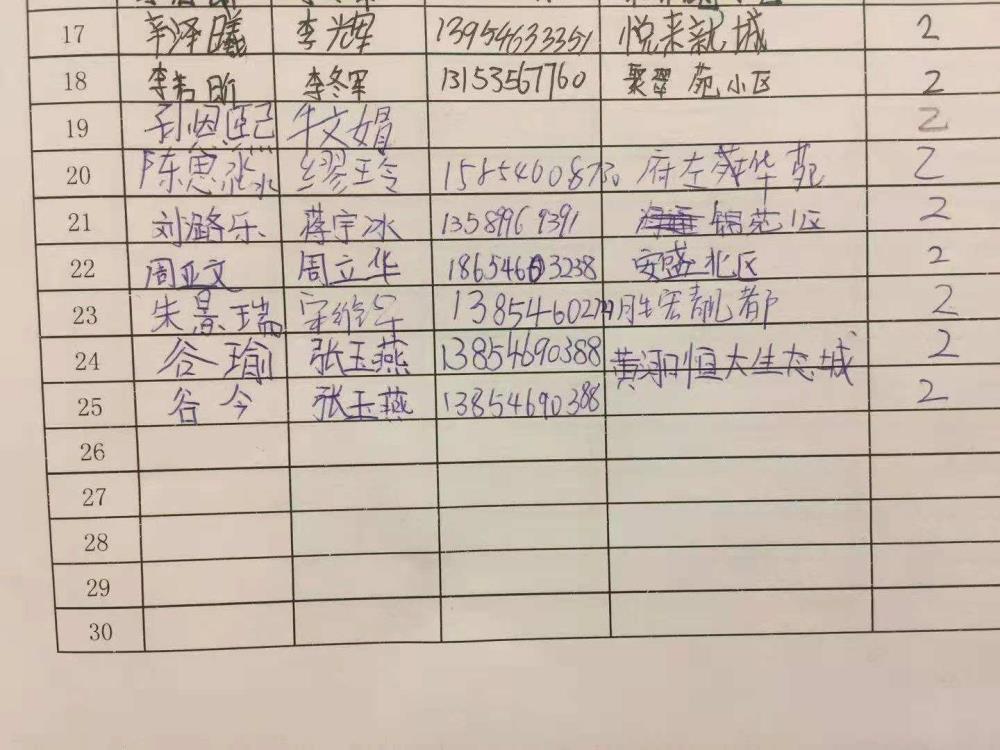 17 辛泽曦 李光辉 13954633351 悦来新城 2
18 李若昕 李冬军 13153567760 聚翠苑小区 2
19 恩熙 牛文娟 2
20 陈思淼 缪玲 府左萃华苑 2
21 刘潞乐 蒋宇冰 13589969391 锦苑区 2
22 周亚文 周立华 18654603238 安盛北区 2
23 朱景瑞 宋维军 13854602 胜宏靓都 2
24 谷瑜 张玉燕 13854690388 黄河恒大生态城 2
25 谷今 张玉燕 13854690388 2
26
27
28
29
30